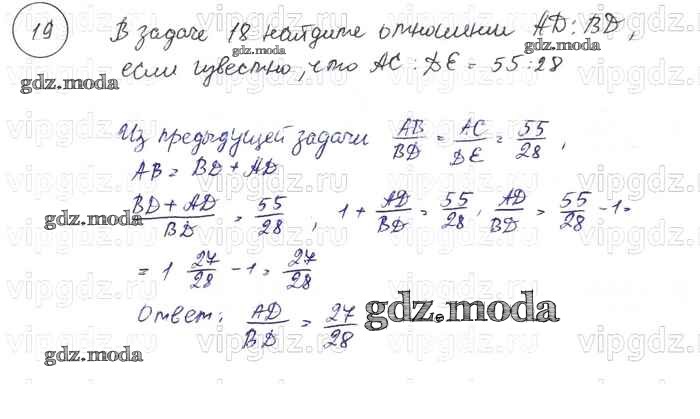 19 В задаче 18 найдите отношении AD : BD,
gdz.moda если известно, что AC : DE = 55 : 28
Из предыдущей задачи AB/BD = AC/DE = 55/28,
AB = BD + AD
gdz.moda (BD + AD)/BD = 55/28, 1 + AD/BD = 55/28, AD/BD = 55/28 - 1 =
= 1 27/28 - 1 = 27/28
Ответ: AD/BD = 27/28 gdz.moda
gdz.moda
vipgdz.ru